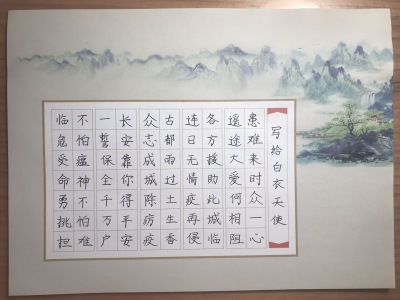 写给白衣天使
患难来时众一心
遥途大爱何相阻
各方援助此城临
连日无情疫再侵
古都雨过土生香
众志成城陈疠疫
长安靠你得平安
一誓保全千万户
不怕瘟神不怕难
临危受命勇挑担